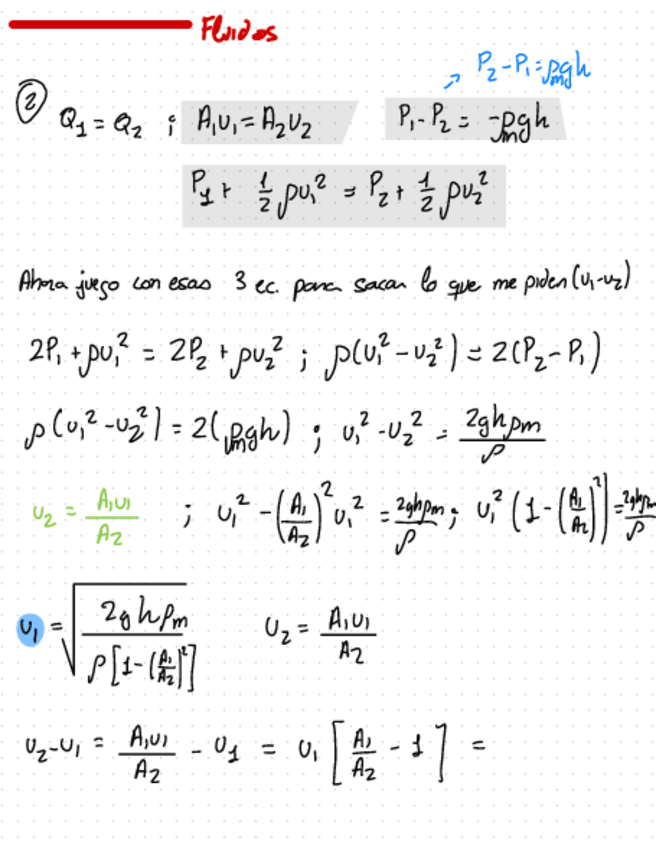 Fluidos
P₂-P₁=ρₘgh
② Q₁ = Q₂ ; A₁υ₁ = A₂υ₂ P₁-P₂ = -ρₘgh
P₁ + 1/2 ρυ₁² = P₂ + 1/2 ρυ₂²
Ahora juego con esas 3 ec. para sacar lo que me piden (υ₁-υ₂)
2P₁ + ρυ₁² = 2P₂ + ρυ₂² ; ρ(υ₁² - υ₂²) = 2(P₂ - P₁)
ρ(υ₁² - υ₂²) = 2(ρₘgh) ; υ₁² - υ₂² = 2ghρm/ρ
υ₂ = A₁υ₁/A₂ ; υ₁² - (A₁/A₂)² υ₁² = 2ghρm/ρ ; υ₁² (1 - (A₁/A₂)²) = 2ghρm/ρ
υ₁ = √(2ghρm / ρ[1-(A₁/A₂)²]) υ₂ = A₁υ₁/A₂
υ₂-υ₁ = A₁υ₁/A₂ - υ₁ = υ₁ [A₁/A₂ - 1] =